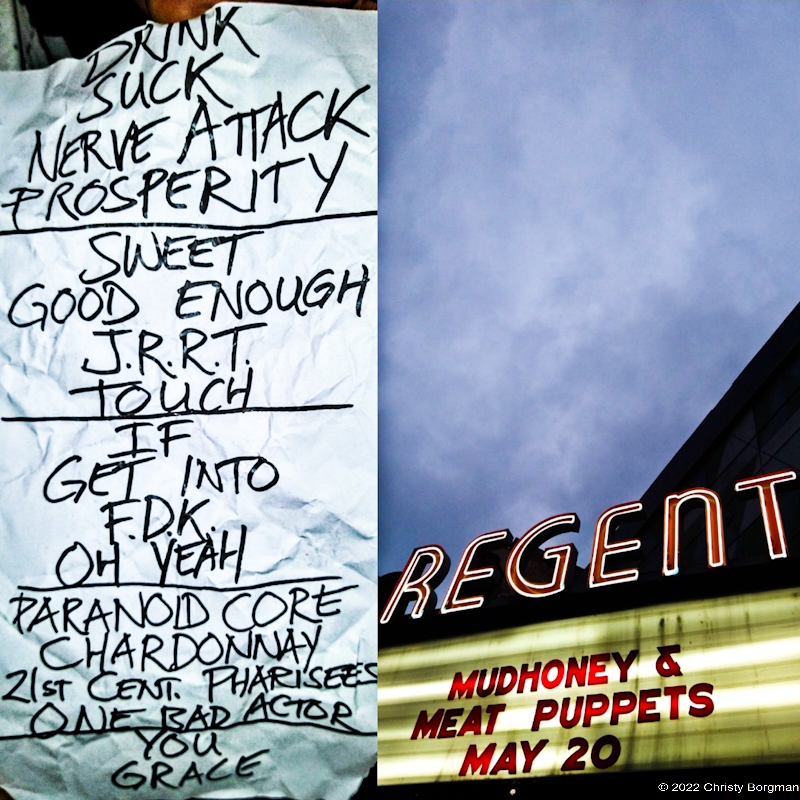 DRINK
SUCK
NERVE ATTACK
PROSPERITY
SWEET
GOOD ENOUGH
J.R.R.T.
TOUCH
IF
GET INTO
F.D.K.
OH YEAH
PARANOID CORE
CHARDONNAY
21ST CENT. PHARISEES
ONE BAD ACTOR
YOU
GRACE
REGENT
MUDHONEY &
MEAT PUPPETS
MAY 20
© 2022 Christy Borgman